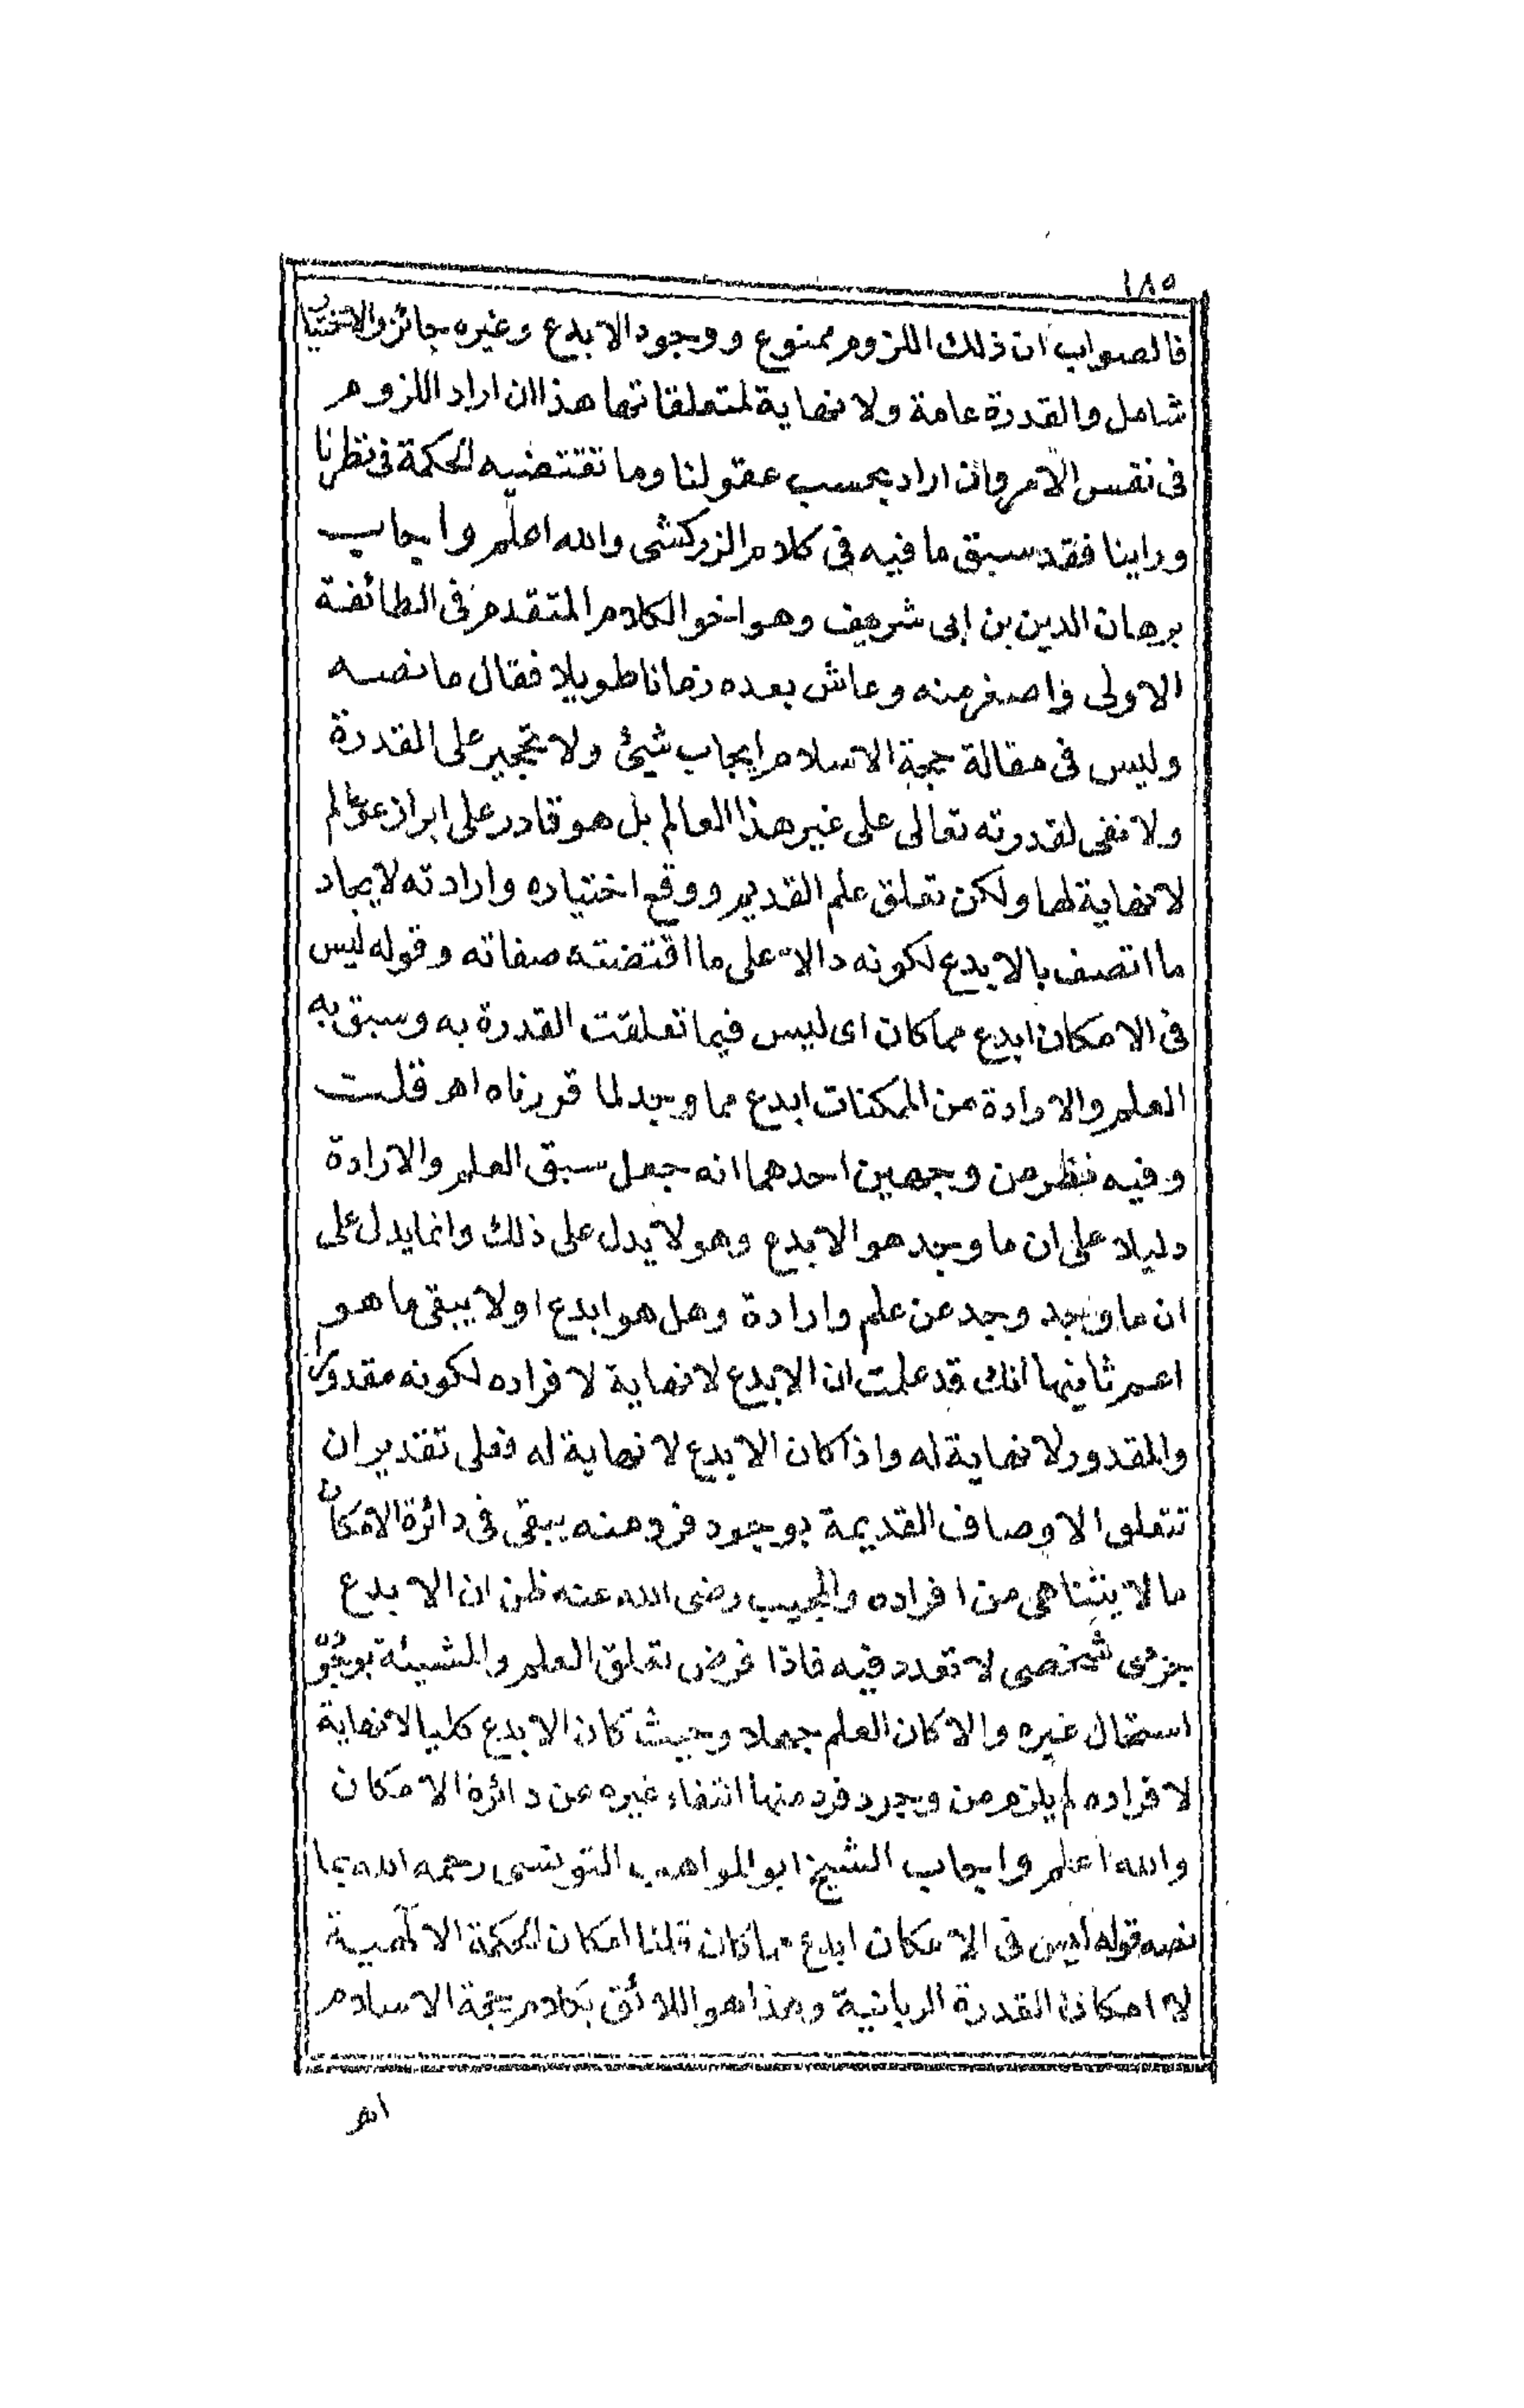 ١٨٥
فالصواب ان ذلك اللزوم ممنوع ووجود الابدع وغيره جائز والاختيار
شامل والقدرة عامة ولا نهاية لمتعلقاتها هذا ان اراد اللزوم
فى نفس الامر وان اراد بحسب عقولنا وما تقتضيه الحكمة فى نظرنا
وراينا فقد سبق ما فيه فى كلام الزركشى والله اعلم واجاب
برهان الدين بن ابى شريف وهو اخو الكلام المتقدم فى الطائفة
الاولى واصغر منه وعاش بعده زمانا طويلا فقال ما نصه
وليس فى مقالة حجة الاسلام ايجاب شيئ ولا تحجير على القدرة
ولا نفى لقدرته تعالى على غير هذا العالم بل هو قادر على ابراز عوالم
لا نهاية لها ولكن تعلق علم القديم ووقع اختياره وارادته لايجاد
ما اتصف بالابدع لكونه دالا على ما اقتضته صفاته وقوله ليس
فى الامكان ابدع مما كان اى ليس فيما تعلقت القدرة به وسبق به
العلم والارادة من الممكنات ابدع مما وجد لما قررناه اهر قلت
وفيه نظر من وجهين احدهما انه جعل سبق العلم والارادة
دليلا على ان ما وجد هو الابدع وهو لا يدل على ذلك وانما يدل على
ان ما وجد وجد عن علم وارادة وهل هو ابدع اولا يبقى ما هو
اعم ثانيها انك قد علمت ان الابدع لا نهاية لافراده لكونه مقدورا
والمقدور لا نهاية له واذا كان الابدع لا نهاية له فعلى تقدير ان
تتعلق الاوصاف القديمة بوجود فرد منه يبقى فى دائرة الامكان
ما لا يتناهى من افراده والمجيب رضى الله عنه ظن ان الابدع
جزءى شخصى لا تعدد فيه فاذا فرض تعلق العلم والمشيئة بوجود
استحال غيره والا كان العلم جهلا وحيث كان الابدع كليا لا نهاية
لافراده لم يلزم من وجود فرد منها انتفاء غيره عن دائرة الامكان
والله اعلم واجاب الشيخ ابو المواهب التونسى رحمه الله بما
نصه قوله ليس فى الامكان ابدع مما كان قلنا امكان الحكمة الالهية
لا امكان القدرة الربانية وهذا هو اللائق بكلام حجة الاسلام
اهر